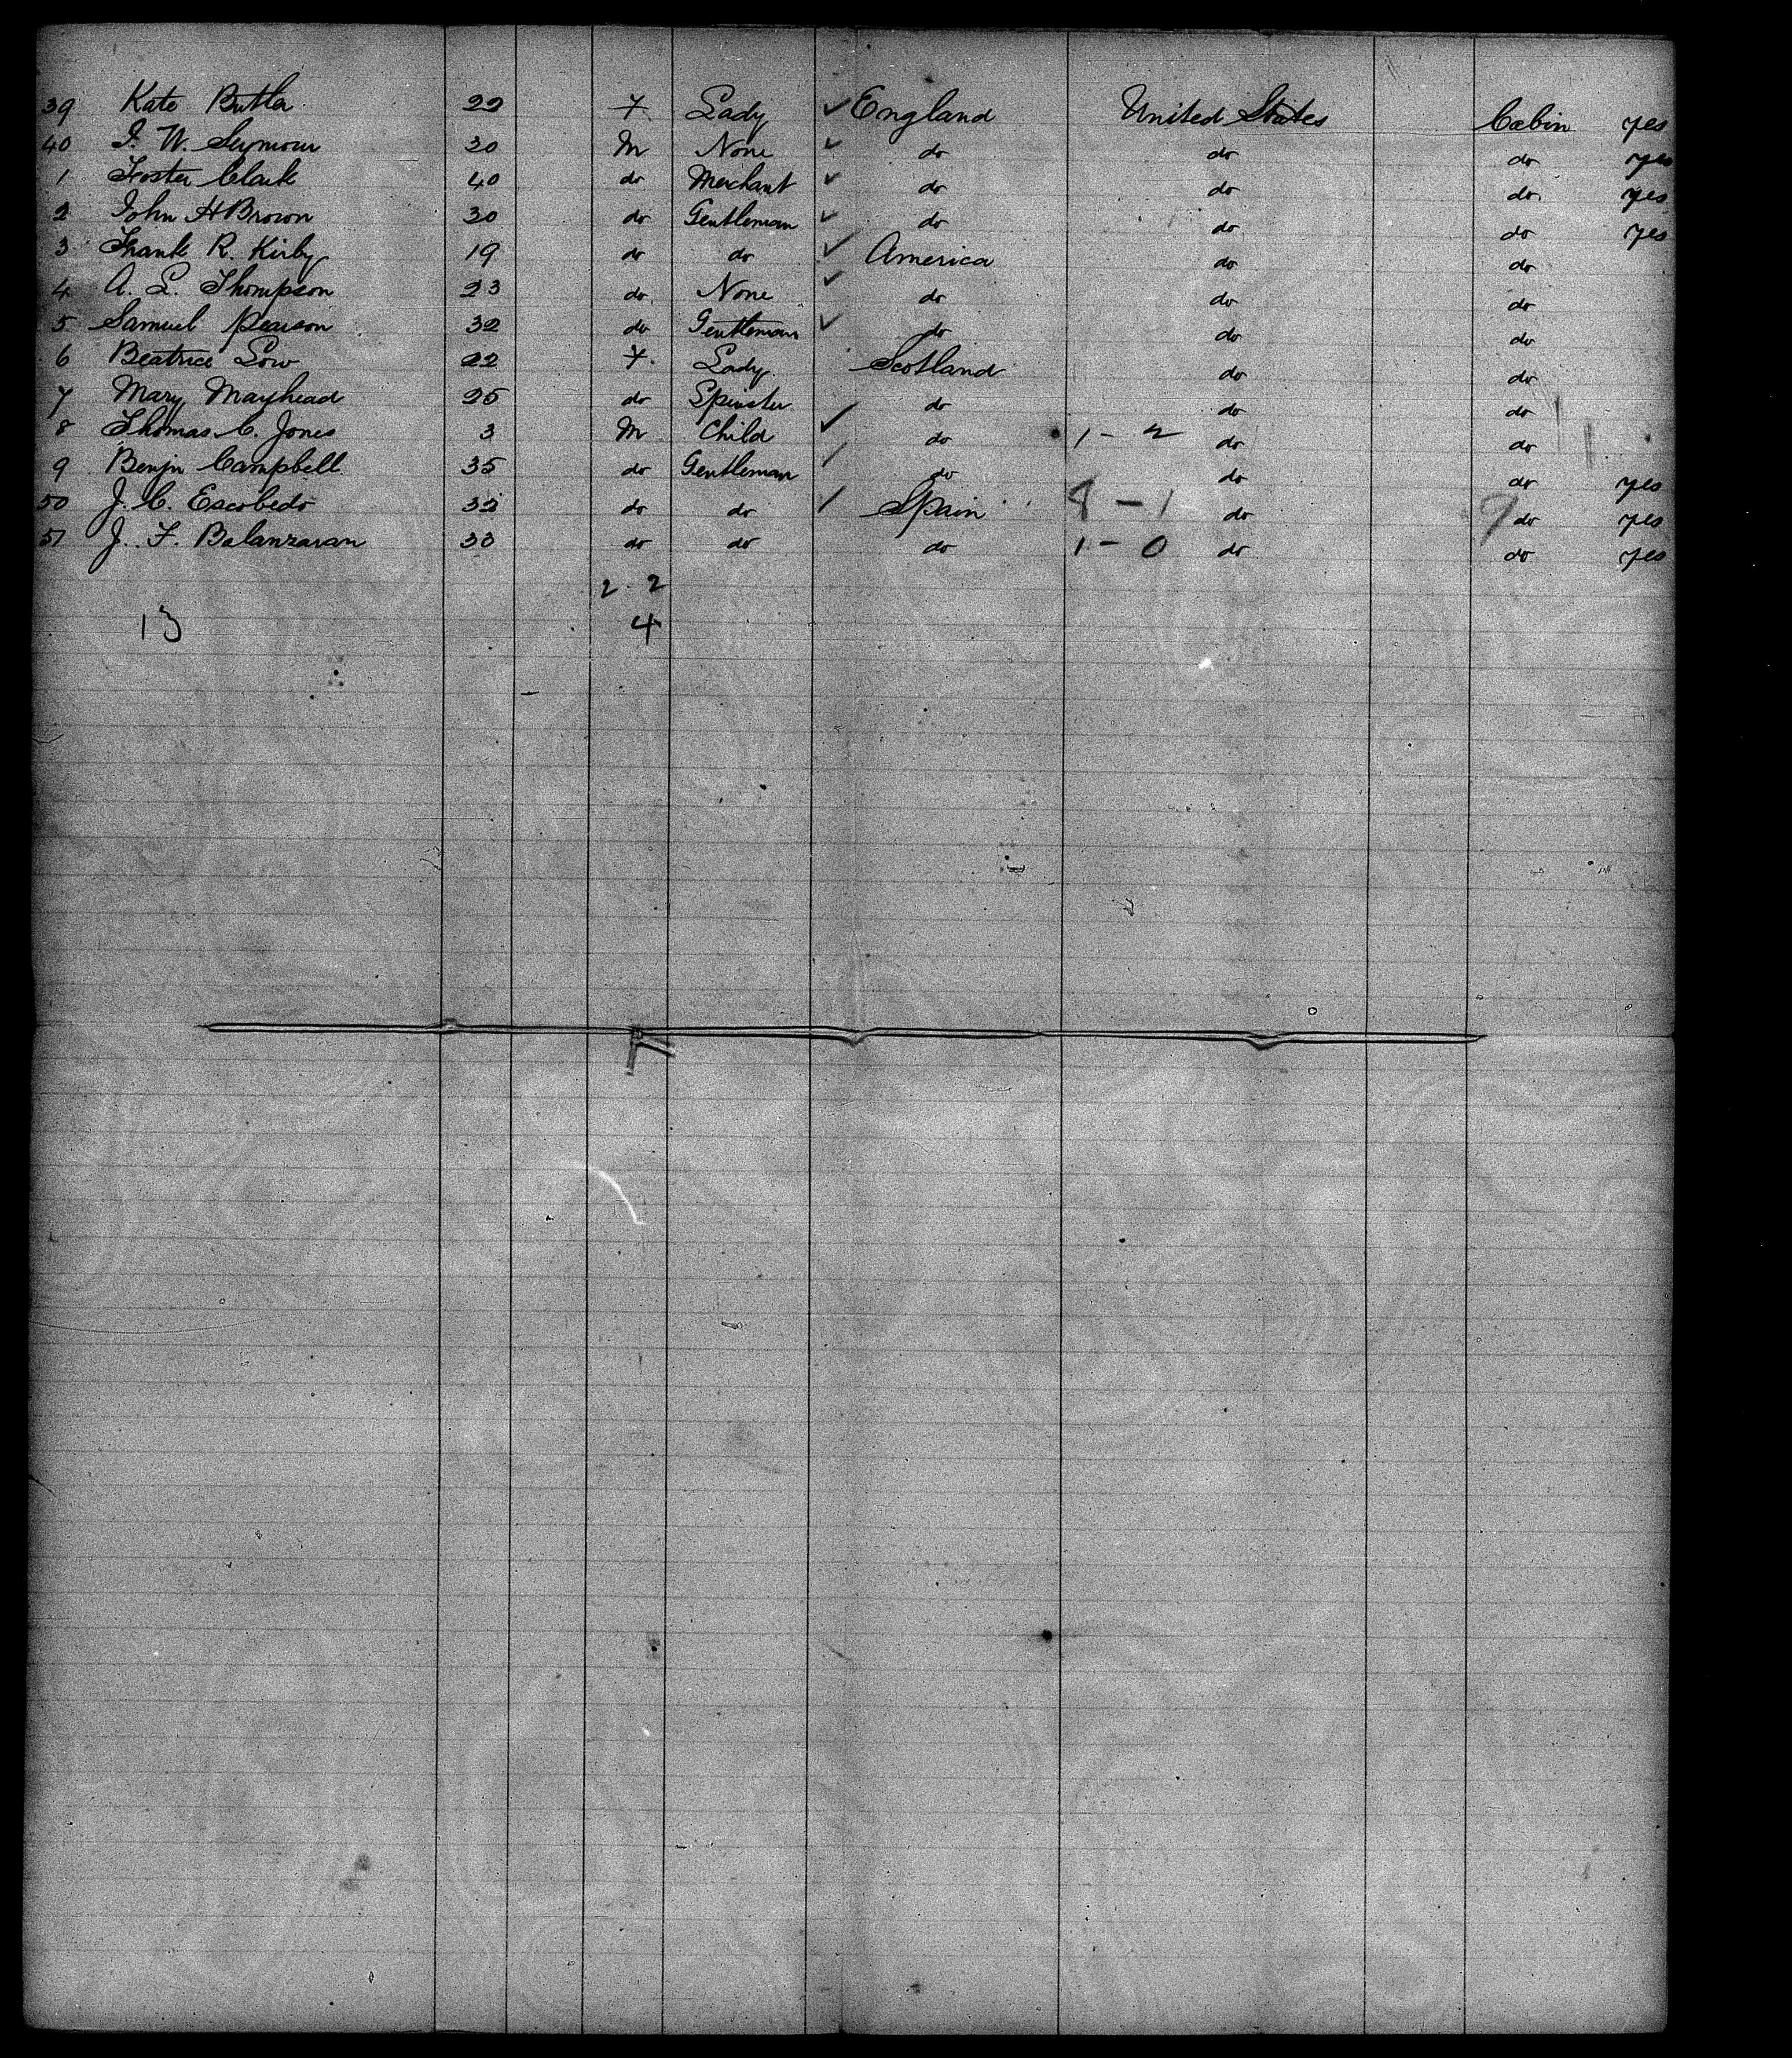 39 Kate Butler 22 F Lady ✓ England United States Cabin yes
40 I. W. Seymour 30 M None ✓ do do do yes
1 Foster Clark 40 do Merchant ✓ do do do yes
2 John H Brown 30 do Gentleman ✓ do do do yes
3 Frank R. Kirby 19 do do ✓ America do do
4 A. L. Thompson 23 do None ✓ do do do
5 Samuel Pearson 32 do Gentleman ✓ do do do
6 Beatrice Low 22 F. Lady Scotland do do
7 Mary Mayhead 25 do Spinster do do do
8 Thomas C. Jones 3 M Child ✓ do 1 - 2 do do
9 Benjn Campbell 35 do Gentleman ✓ do do do yes
50 J. C. Escobedo 32 do do ✓ Spain 8 - 1 do 9 do yes
51 J. F. Balanzaran 33 do do do 1 - 0 do do yes
2 - 2
13 4